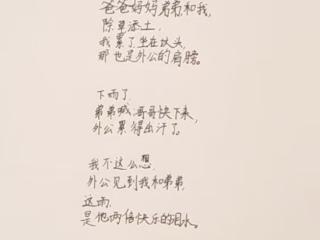 爸爸妈妈弟弟和我,
除草添土。
我累了坐在坟头,
那也是外公的肩膀。
下雨了
弟弟喊,哥哥快下来,
外公累得出汗了。
我不这么想
外公见到我和弟弟,
这雨,
是他两倍快乐的泪水。